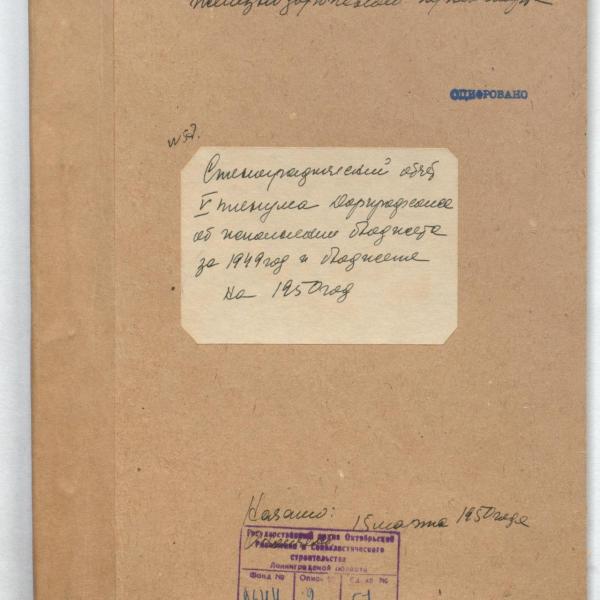 ОЦИФРОВАНО
Стенографический отчёт
V пленума Дорпрофсожа
об исполнении бюджета
за 1949 год и бюджете
на 1950 год
Начато: 15 марта 1950 года
Государственный архив Октябрьской
Революции и Социалистического
строительства
Ленинградской области
Фонд № Опись № Ед. хр. №
9 57